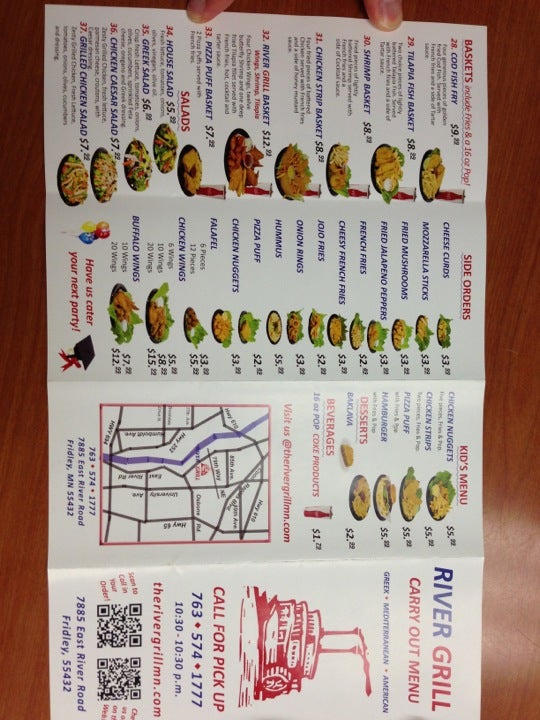 BASKETS include Fries & a 16 oz Pop!
28. COD FISH FRY $9.99
Four generous pieces of golden
fried Cod Fish served with
French fries and a side of Tartar
sauce.
29. TILAPIA FISH BASKET $8.99
Two choice pieces of lightly
battered Tilapia Fish, served
with French fries and a side of
Tartar sauce.
30. SHRIMP BASKET $8.99
Fried pieces of lightly
battered Shrimp served with
French fries and a
side of Cocktail sauce.
31. CHICKEN STRIP BASKET $8.99
Four fried pieces of battered
Chicken served with French fries
and a side of honey mustard
sauce.
32. RIVER GRILL BASKET $12.99
Wings, Shrimp, Tilapia
Four Chicken Wings, twelve
butterfly Shrimp and one deep
fried Tilapia fillet served with
French fries, hot, cocktail and
tartar sauce.
33. PIZZA PUFF BASKET $7.99
2 Pizza Puffs served with
French fries.
SALADS
34. HOUSE SALAD $5.99
Fresh lettuce, tomatoes, onions,
olives, vinegar and olive oil.
35. GREEK SALAD $6.99
Crisp fresh Lettuce, tomatoes, onions,
olives, cucumbers, pepperoncini, feta
cheese, oregano and Greek dressing.
36. CHICKEN CAESAR SALAD $7.99
Zesty Grilled Chicken, fresh lettuce,
parmesan cheese, croutons, with
Caesar dressing.
37. GRILLED CHICKEN SALAD $7.99
Zesty Grilled Chicken, Fresh Lettuce,
tomatoes, onions, olives, cucumbers
and dressing.
SIDE ORDERS
CHEESE CURDS $3.99
MOZZARELLA STICKS $3.99
FRIED MUSHROOMS $3.99
FRIED JALAPENO PEPPERS $3.99
FRENCH FRIES $2.49
CHEESY FRENCH FRIES $3.99
JOJO FRIES $2.99
ONION RINGS $3.99
HUMMUS $5.99
PIZZA PUFF $2.49
CHICKEN NUGGETS $3.99
FALAFEL
6 Pieces $3.99
12 Pieces $5.99
CHICKEN WINGS
6 Wings $5.99
10 Wings $8.99
20 Wings $15.99
BUFFALO WINGS
10 Wings $7.99
20 Wings $12.99
Have us cater
your next party!
KID'S MENU
CHICKEN NUGGETS $5.99
Five pieces, Fries & Pop.
CHICKEN STRIPS $5.99
Two pieces, Fries & Pop.
PIZZA PUFF $5.99
with Fries & Pop
HAMBURGER $5.99
with Fries & Pop
DESSERTS
BAKLAVA $2.99
BEVERAGES
16 oz POP COKE PRODUCTS $1.79
Visit us @therivergrillmn.com
Hwy 610
85th Ave.
79th Way
Osborne Rd
Hwy 65
University Ave
East River Rd
Hwy 252
Humboldt Ave
Hwy 694
RIVER GRILL
763 • 574 • 1777
7885 East River Road
Fridley, MN 55432
RIVER GRILL
CARRY OUT MENU
GREEK • MEDITERRANEAN • AMERICAN
CALL FOR PICK UP
763 • 574 • 1777
10:30 - 10:30 p.m.
therivergrillmn.com
Scan to
Call in
Your
Order!
7885 East River Road
Fridley, 55432